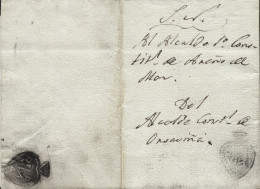 S. N.
Al Alcalde 1º Cons-
titl. de Areñs de
Mar.
Del
Alcalde Constl. de